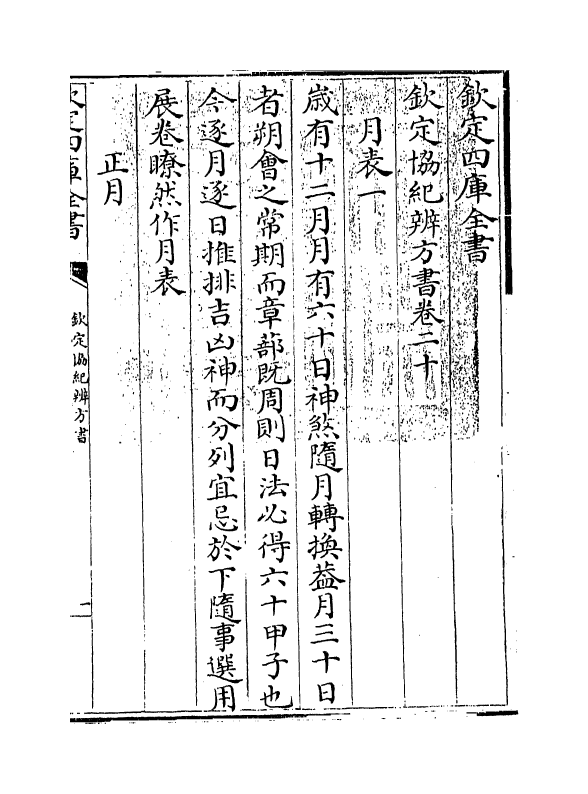 欽定四庫全書
欽定協紀辨方書卷二十
月表一
歳有十二月月有六十日神煞隨月轉換葢月三十日
者朔會之常期而章蔀既周則日法必得六十甲子也
今逐月逐日推排吉凶神而分列宜忌於下隨事選用
展卷瞭然作月表
正月
欽定四庫全書
欽定協紀辨方書
一